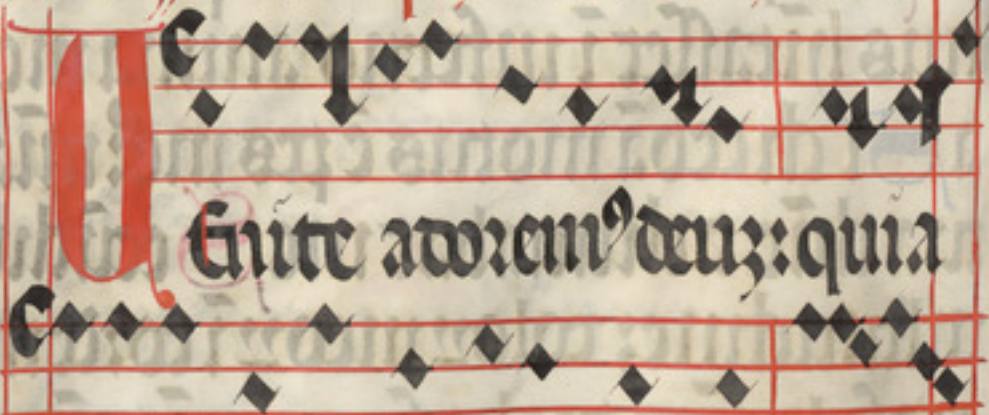 VEnite adoremꝰ deuz: quia